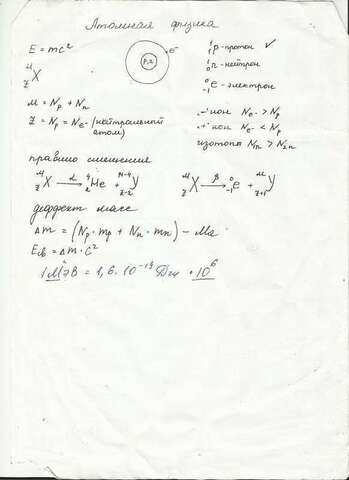 Атомная физика
E = mc²
p,n
e⁻
¹₁p - протон ✓
ᴹ_Z X
¹₀n - нейтрон
⁰₋₁e - электрон
M = Np + Nn
Z = Np = Ne- (нейтральный атом)
"-" ион Ne- > Np
"+" ион Ne- < Np
изотопы N1n > N2n
правило смещения
ᴹ_Z X →(α) ⁴₂He + ᴹ⁻⁴_Z-2 Y
ᴹ_Z X →(β) ⁰₋₁e + ᴹ_Z+1 Y
деффект масс
Δm = (Np · mp + Nn · mn) - Mя
Eсв = Δm · C²
1 МэВ = 1,6 · 10⁻¹⁹ Дж · 10⁶